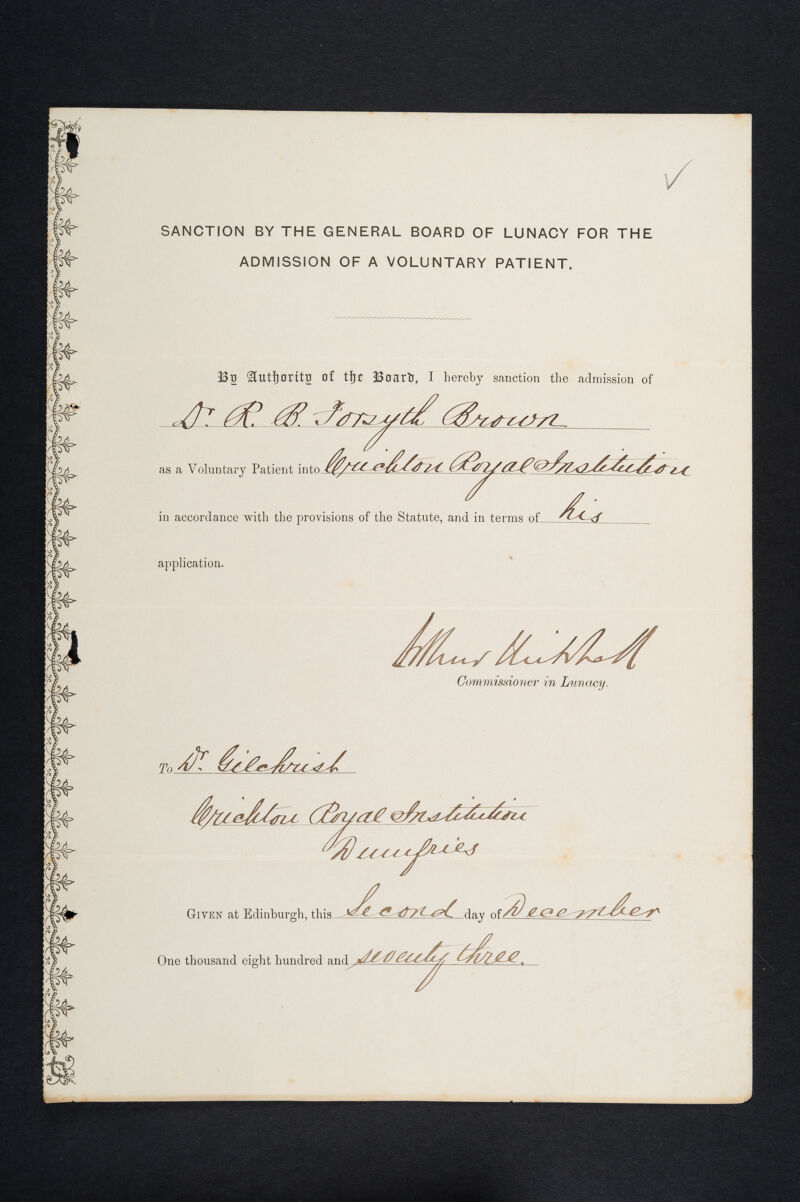 SANCTION BY THE GENERAL BOARD OF LUNACY FOR THE
ADMISSION OF A VOLUNTARY PATIENT.
By Authority of the Board, I hereby sanction the admission of
Dr. R. B. Forsyth Brown
as a Voluntary Patient into Crichton Royal Institution
in accordance with the provisions of the Statute, and in terms of his
application.
Arthur Mitchell
Commissioner in Lunacy.
To Dr. Gilchrist
Crichton Royal Institution
Dumfries
GIVEN at Edinburgh, this Second day of December
One thousand eight hundred and seventy three.